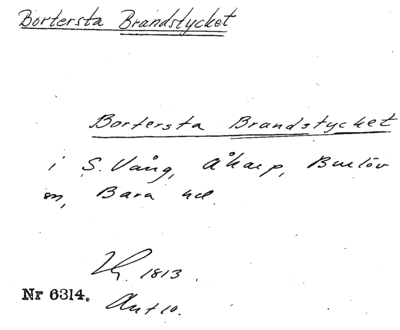 Bortersta Brandstycket
Bortersta Brandstycket
i S. Vång, Åkarp, Burlöv
sn, Bara hd.
1813.
Nr 6314. Akt 10.